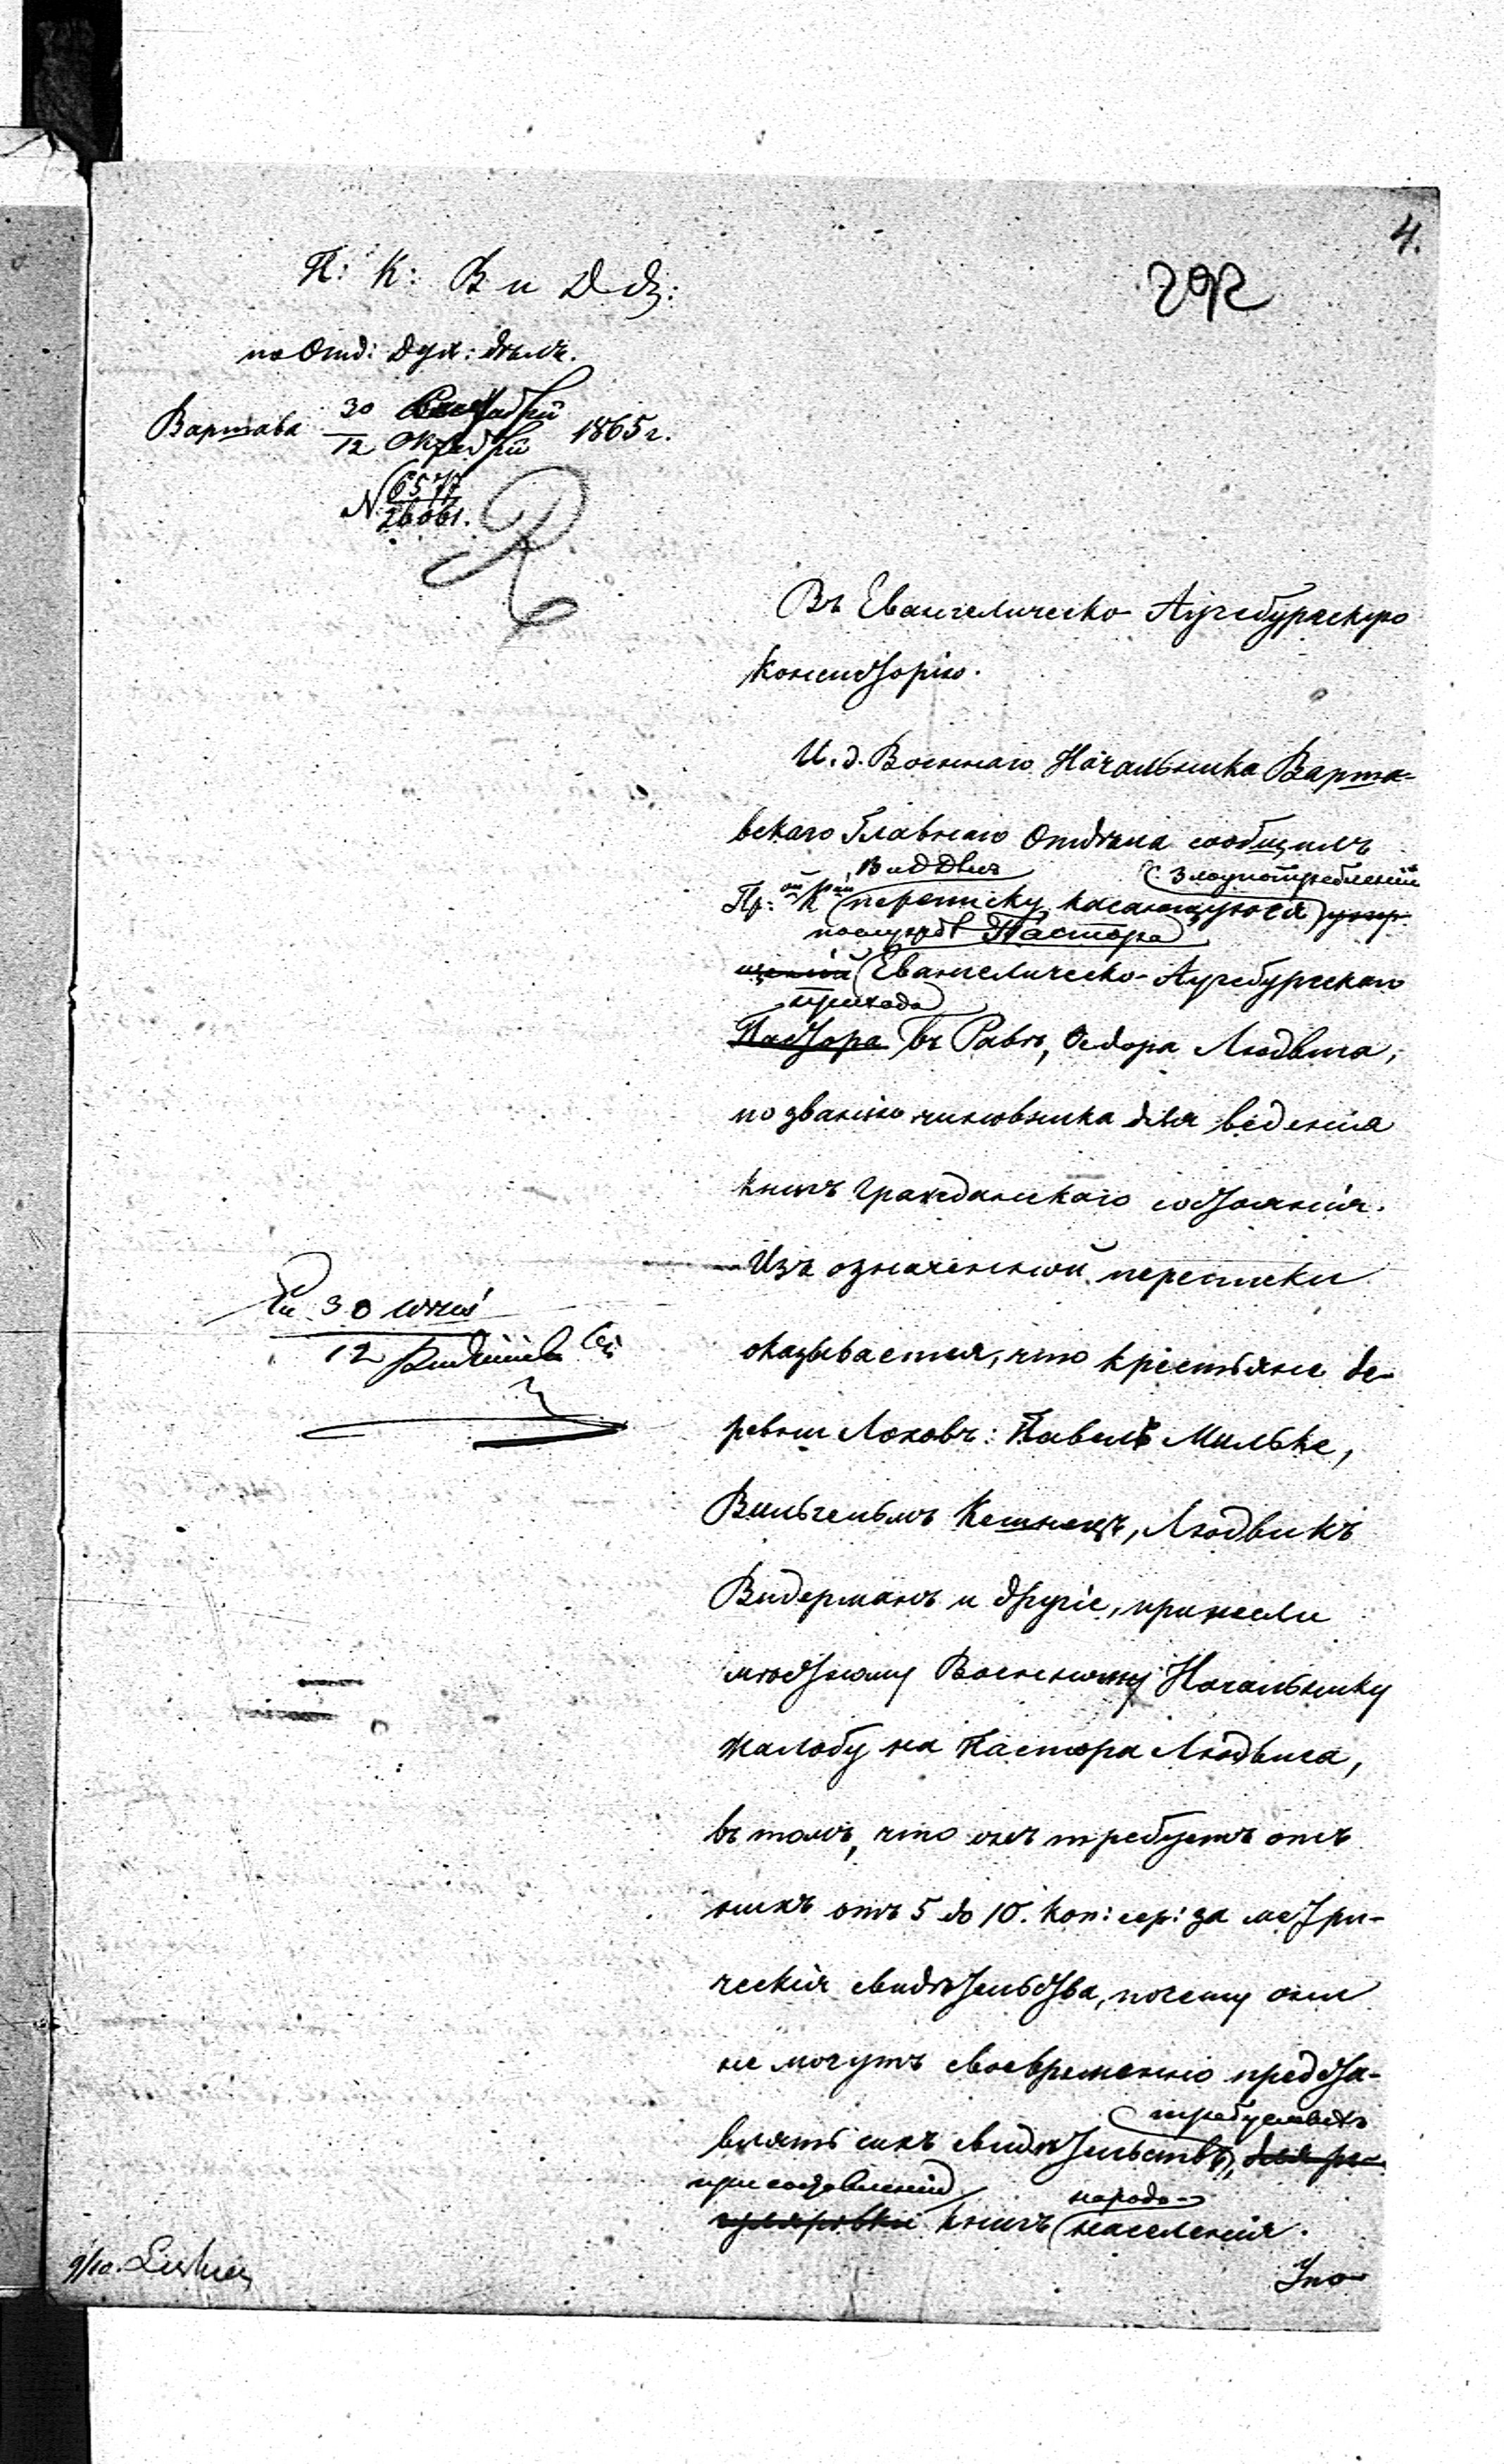 4.
292
П: К: В и Д Д:
по Отд: Дух: дѣлъ.
Варшава 30 Сентября / 12 Октября 1865 г.
N 6577 / 26061.
Въ Евангелическо-Аугсбургскую
Консисторію.
И. д. Военнаго Начальника Варша-
вскаго Главнаго Отдѣла сообщилъ
В и Д Дѣлъ (злоупотребленій
Пр: К переписку, касающуюся
Пастора
Евангелическо-Аугсбургскаго
прихода
Надзора въ Равѣ, Ѳедора Людвига,
по званію чиновника для веденія
книгъ гражданскаго состоянія.
Изъ означенной переписки
оказывается, что крестьяне де-
ревни Лоховъ: Павелъ Мильке,
Вильгельмъ Кешнецъ, Людвикъ
Видерманъ и другіе, принесли
мѣстному Военному Начальнику
жалобу на Пастора Людвига,
въ томъ, что онъ требуетъ отъ
нихъ отъ 5 до 10. коп: сер: за метри-
ческія свидѣтельства, почему они
не могутъ своевременно предста-
требуемыхъ
влять сихъ свидѣтельствъ, для ре-
при составленіи народо-
гулировки книгъ населенія.
30
12
9/10.